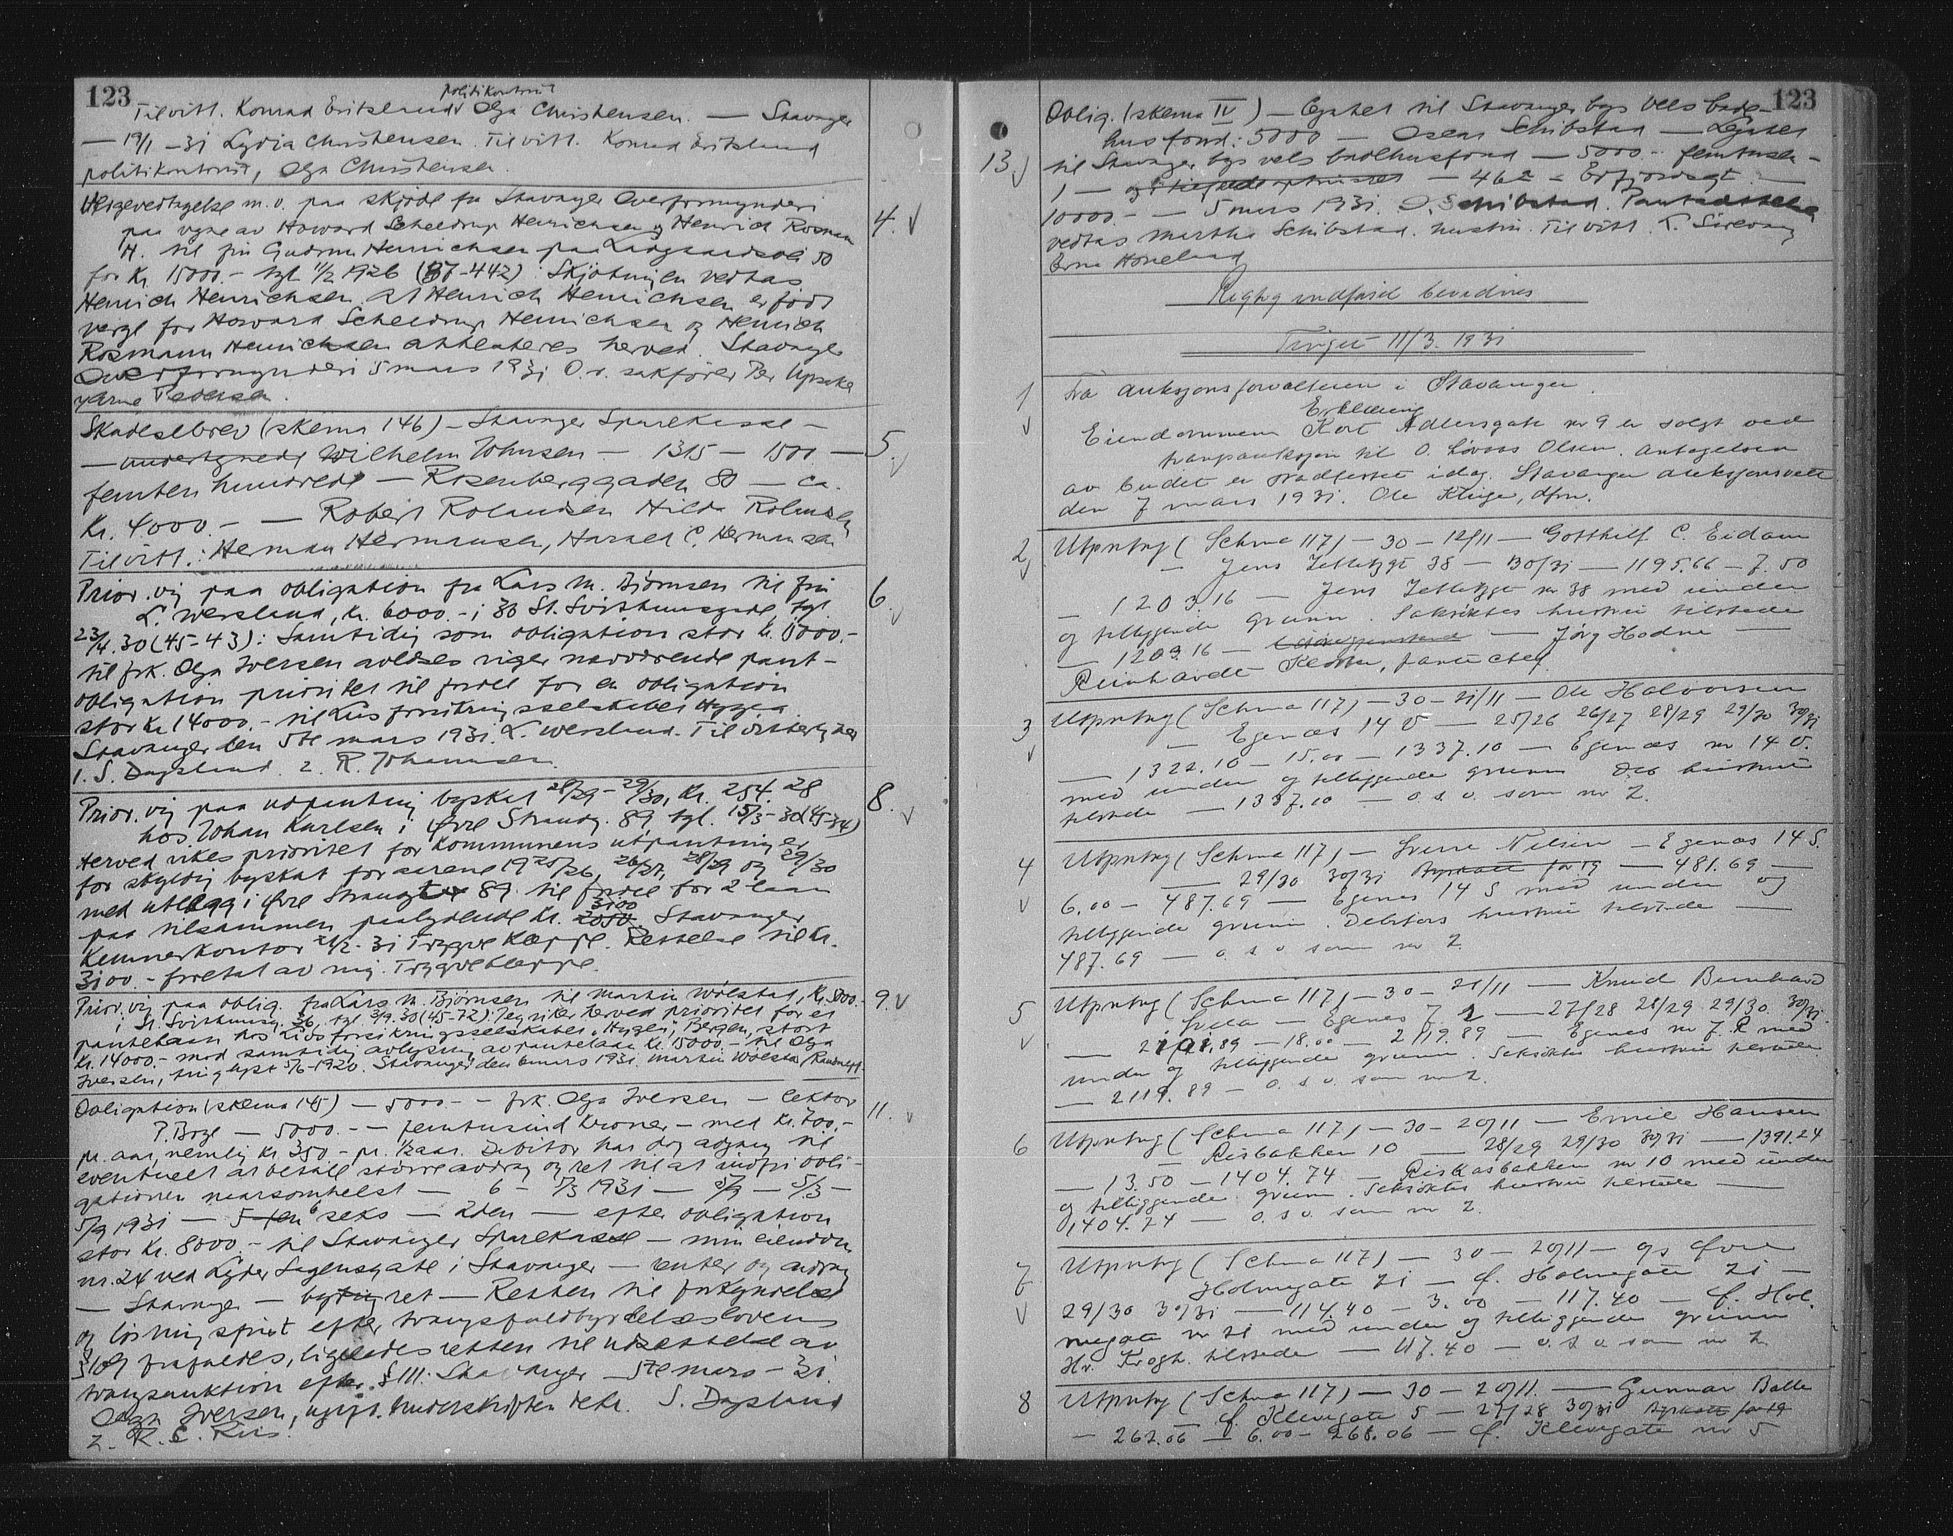 123
politikontorist
Til vitt. Konrad Eritsland Olga Christensen. — Stavanger
— 19/1 - 31 Lydia Christensen. Til vitt. Konrad Eritsland
politikontorist, Olga Christensen.
m.v. paa skjøde fra Stavanger Overformynderi
paa vegne av Howard Scheldrup Henrichsen og Henrich Rosman
H. til fru Gudrun Henrichsen paa Langgaardsvei 50
for Kr. 15000.- tgl. 11/2 1926 (37-442): Skjøtningen vedtas
Henrich Henrichsen. At Henrich Henrichsen er født
verge for Howard Scheldrup Henrichsen og Henrich
Rosmann Henrichsen attesteres herved. Stavanger
Overformynderi 5 mars 1931 O.r. sakfører Per
Arne Pedersen.
4.
Skadesbrev (skema 146) - Stavanger Sparekasse -
— undertegnede Wilhelm Johnsen — 1315 — 1500 —
femten hundrede — Rosenberggaden 80 — ca.
Kr. 4000.- — Robert Rolandsen Hilda
Til vitt.: Herman Hermansen, Harald C. Hermansen
5.
Prior. vig paa obligation fra Lars M. Bjørnsen til fru
L. Wersland, Kr. 6000.- i 36 St. Svithunsgade, tgl.
23/4.30 (45-43): Samtidig som obligation stor Kr. 15000.-
til frk. Olga Iversen avløses viger nærværende pant-
obligation prioritet til fordel for en obligation
stor Kr. 14000.- til Livsforsikringsselskabet Hygea.
Stavanger den 5te mars 1931. L. Wersland. Til vitterlighet
1. S. Dagsland 2. R. Johannsen.
6.
Prior. vig paa utpanting byskat 28/29 - 29/30, Kr. 254.28
hos Johan Karlsen i Øvre Strandg. 89 tgl. 15/3-30 (45-34)
Herved vikes prioritet for kommunens utpanting er
for skyldig byskat for aarene 1925/26, 26/27, 28/29 og 29/30
med utlegg i Øvre Strandgt 89 til fordel for 2 laan
3100
paa tilsammen paalydende Kr. 2050. Stavanger
Kemnerkontor 21/2-31 Trygve Kleppe. Rettelse til Kr.
3100.- foretat av mig. Trygve Kleppe.
8.
Prior. vig paa oblig. fra Lars M. Bjørnsen til Martin Wølstad, Kr. 5000.-
i St. Svithunsg. 36, tgl. 3/9.30 (45-72): Jeg viker herved prioritet for et
pantelaan hos Livsforsikringsselskabet "Hygea", Bergen, stort
Kr. 14000.- mod samtidig avlysning av pantelaan Kr. 15000.- til Olga
Iversen, tinglyst 5/6-1920. Stavanger den 6 mars 1931. Martin Wølstad
9.
Obligation (skema 145) — 5000.- - frk. Olga Iversen — lektor
P. Boge — 5000.- - femtusind kroner — med Kr. 700.-
pr. aar, nemlig Kr. 350.- pr. 1/2 aar. Debitor har dog adgang til
eventuelt at betale større avdrag og ret til at indfri obli-
gationen naarsomhelst — 6 — 5/3 1931 — 5/9 — 5/3 —
5/9 1931 — 5 fem 6 seks — 2den — efter obligation
stor Kr. 8000.- til Stavanger Sparekasse — min eiendom
nr. 24 ved Lyder Sagensgate i Stavanger — renter og avdrag
— Stavanger — bytingret — Retten til forkyndelse
og løsningsfrist efter tvangsfuldbyrdelseslovens
frafaldes, ligeledes retten til utsættelse av
tvangsauktion efter § 111. Stavanger 5te mars - 31.
Olga Iversen, ugift. Underskriften vedk. S. Dagsland
2. R. E. Riis.
11.
123
Oblig. (skema IV) — Legatet til Stavanger bys vels bade-
husfond: 5000 — Oscar Schibstad — Legatet
til Stavanger bys vels badehusfond — 5000.- femtusen -
1 — — 462 - Erfjordsgt. —
10000.- — 5 mars 1931. O. Schibstad. Pantsettelse
vedtas Martha Schibstad. hustru. Til vitt. T. Sirevaag
Erna Honeland
13
Rigtig indført bevidnes
Tinget 11/3. 1931
1 Fra auksjonsforvalteren i Stavanger.
Erklæring
Eiendommen Kort Adlersgate nr 9 er solgt ved
tvangsauksjon til O. Løvaas Olsen. Antagelsen
av budet er stadfestet idag. Stavanger auksjonsrett
den 7 mars 1931. Ole Kluge, dfm.
2 Utpntng (Schma 117) — 30 — 12/11 — Gotthilf C. Eidam
— Jens Zetlitzgt 38 — 30/31 — 1195.66 — 7.50
— 1203.16 — Jens Zetlitzgt nr 38 med under
og tilliggende grunn. Saksøktes hustru tilstede
— 1203.16 — — Jørg Hodne —
Reinhardt
3 Utpntng (Schma 117) — 30 — 21/11 — Ole Halvorsen
— Egenæs 14 — 25/26 26/27 28/29 29/30 30/31
— 1322.10 — 15.00 — 1337.10 — Egenæs nr 14
med under og tilliggende grunn Deb hustru
tilstede — 1337.10 — o.s.v. som nr 2.
4 Utpntng (Schma 117) — Sverre Nilsen — Egenæs 14 S.
— 29/30 30/31 Byskatt for 19 — 481.69 —
6.00 — 487.69 — Egenes 14 S med under og
tilliggende grunn. Debitors hustru tilstede —
487.69 — o.s.v. som nr 2
5 Utpntng (Schma 117) — 30 — 21/11 — Knud Bernhard
— Egenes 7 — 27/28 28/29 29/30 30/31
— 2101.89 — 18.00 — 2119.89 — Egenes nr 7 med
under og tilliggende grunn. Saksøktes hustru tilstede
— 2119.89 — o.s.v. som nr 2.
6 Utpntng (Schma 117) — 30 — 20/11 — Emil Hansen
— Risbakken 10 — 28/29 29/30 30/31 — 1391.24
— 13.50 — 1404.74 — nr 10 med under
og tilliggende grunn. Saksøktes hustru tilstede —
1404.74 — o.s.v. som nr 2.
7 Utpntng (Schma 117) — 30 — 20/11 — Øvre
Holmegate 21 — Ø. Holmegate 21 —
29/30 30/31 — 114.40 — 3.00 — 117.40 — Ø. Hol-
megate nr 21 med under og tilliggende grunn
Hr. Krogh tilstede — 117.40 — o.s.v. som nr 2.
8 Utpntng (Schma 117) — 30 — 20/11. — Gunnar Balle
— Ø. Klevegate 5 — 27/28 30/31 Byskatt for 19
— 262.06 — 6.00 — 268.06 — Ø. Klevegate nr 5